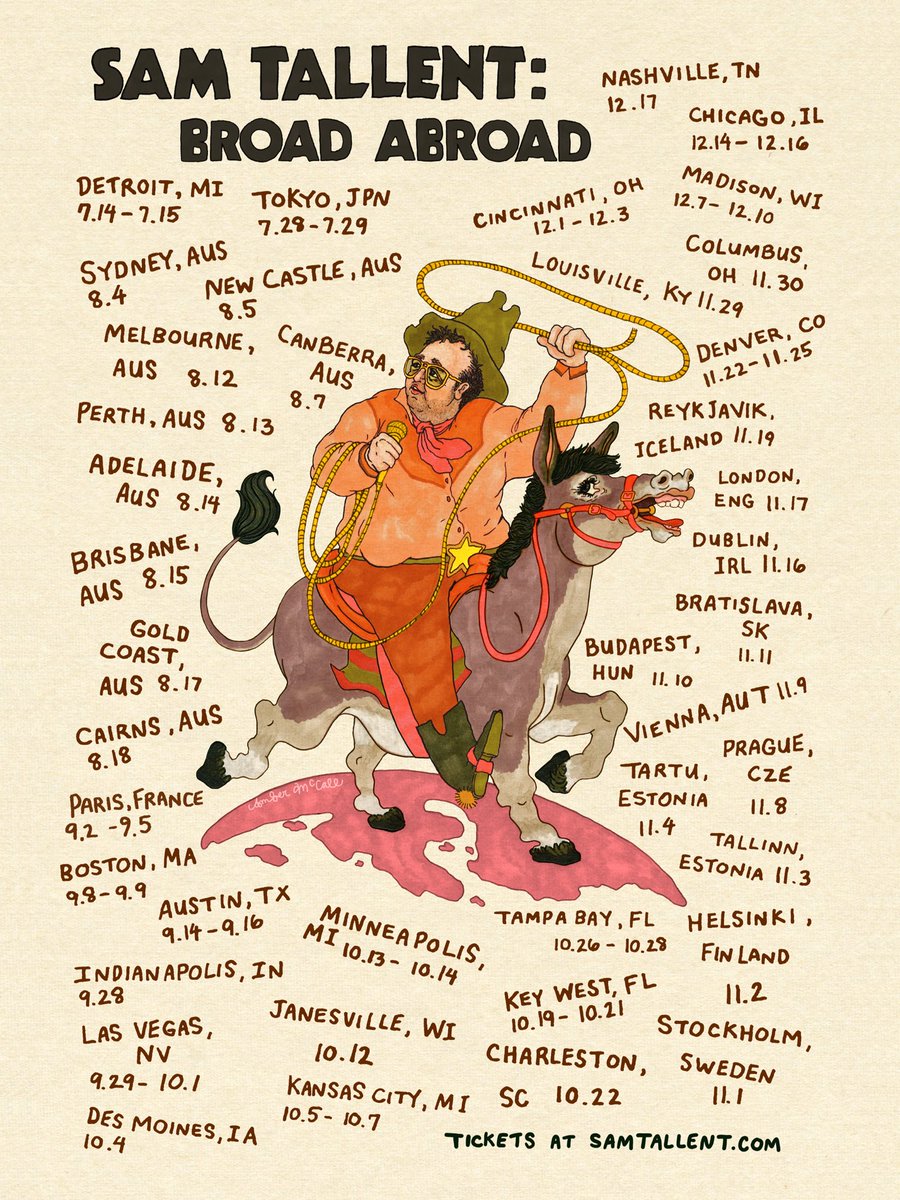 SAM TALLENT:
BROAD ABROAD
DETROIT, MI
7.14 - 7.15
TOKYO, JPN
7.28 - 7.29
SYDNEY, AUS
8.4
NEW CASTLE, AUS
8.5
MELBOURNE,
AUS 8.12
CANBERRA,
AUS
8.7
PERTH, AUS 8.13
ADELAIDE,
AUS 8.14
BRISBANE,
AUS 8.15
GOLD
COAST,
AUS 8.17
CAIRNS, AUS
8.18
PARIS, FRANCE
9.2 - 9.5
BOSTON, MA
9.8 - 9.9
AUSTIN, TX
9.14 - 9.16
INDIANAPOLIS, IN
9.28
LAS VEGAS,
NV
9.29 - 10.1
DES MOINES, IA
10.4
KANSAS CITY, MI
10.5 - 10.7
JANESVILLE, WI
10.12
MINNEAPOLIS,
MI 10.13 - 10.14
KEY WEST, FL
10.19 - 10.21
CHARLESTON,
SC 10.22
TAMPA BAY, FL
10.26 - 10.28
STOCKHOLM,
SWEDEN
11.1
HELSINKI,
FINLAND
11.2
TALLINN,
ESTONIA 11.3
TARTU,
ESTONIA
11.4
PRAGUE,
CZE
11.8
VIENNA, AUT 11.9
BUDAPEST,
HUN 11.10
BRATISLAVA,
SK
11.11
DUBLIN,
IRL 11.16
LONDON,
ENG 11.17
REYKJAVIK,
ICELAND 11.19
DENVER, CO
11.22 - 11.25
LOUISVILLE, KY 11.29
COLUMBUS,
OH 11.30
CINCINNATI, OH
12.1 - 12.3
MADISON, WI
12.7 - 12.10
CHICAGO, IL
12.14 - 12.16
NASHVILLE, TN
12.17
Amber McCall
TICKETS AT SAMTALLENT.COM